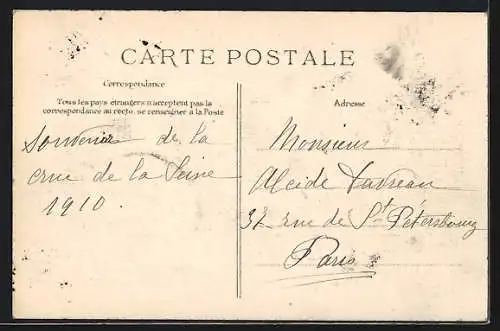 CARTE POSTALE
Correspondance
Tous les pays étrangers n'acceptent pas la
correspondance au recto, se renseigner à la Poste
Souvenir de la
crue de la Seine
1910.
Adresse
Monsieur
Alcide
37 rue de St Pétersbourg
Paris